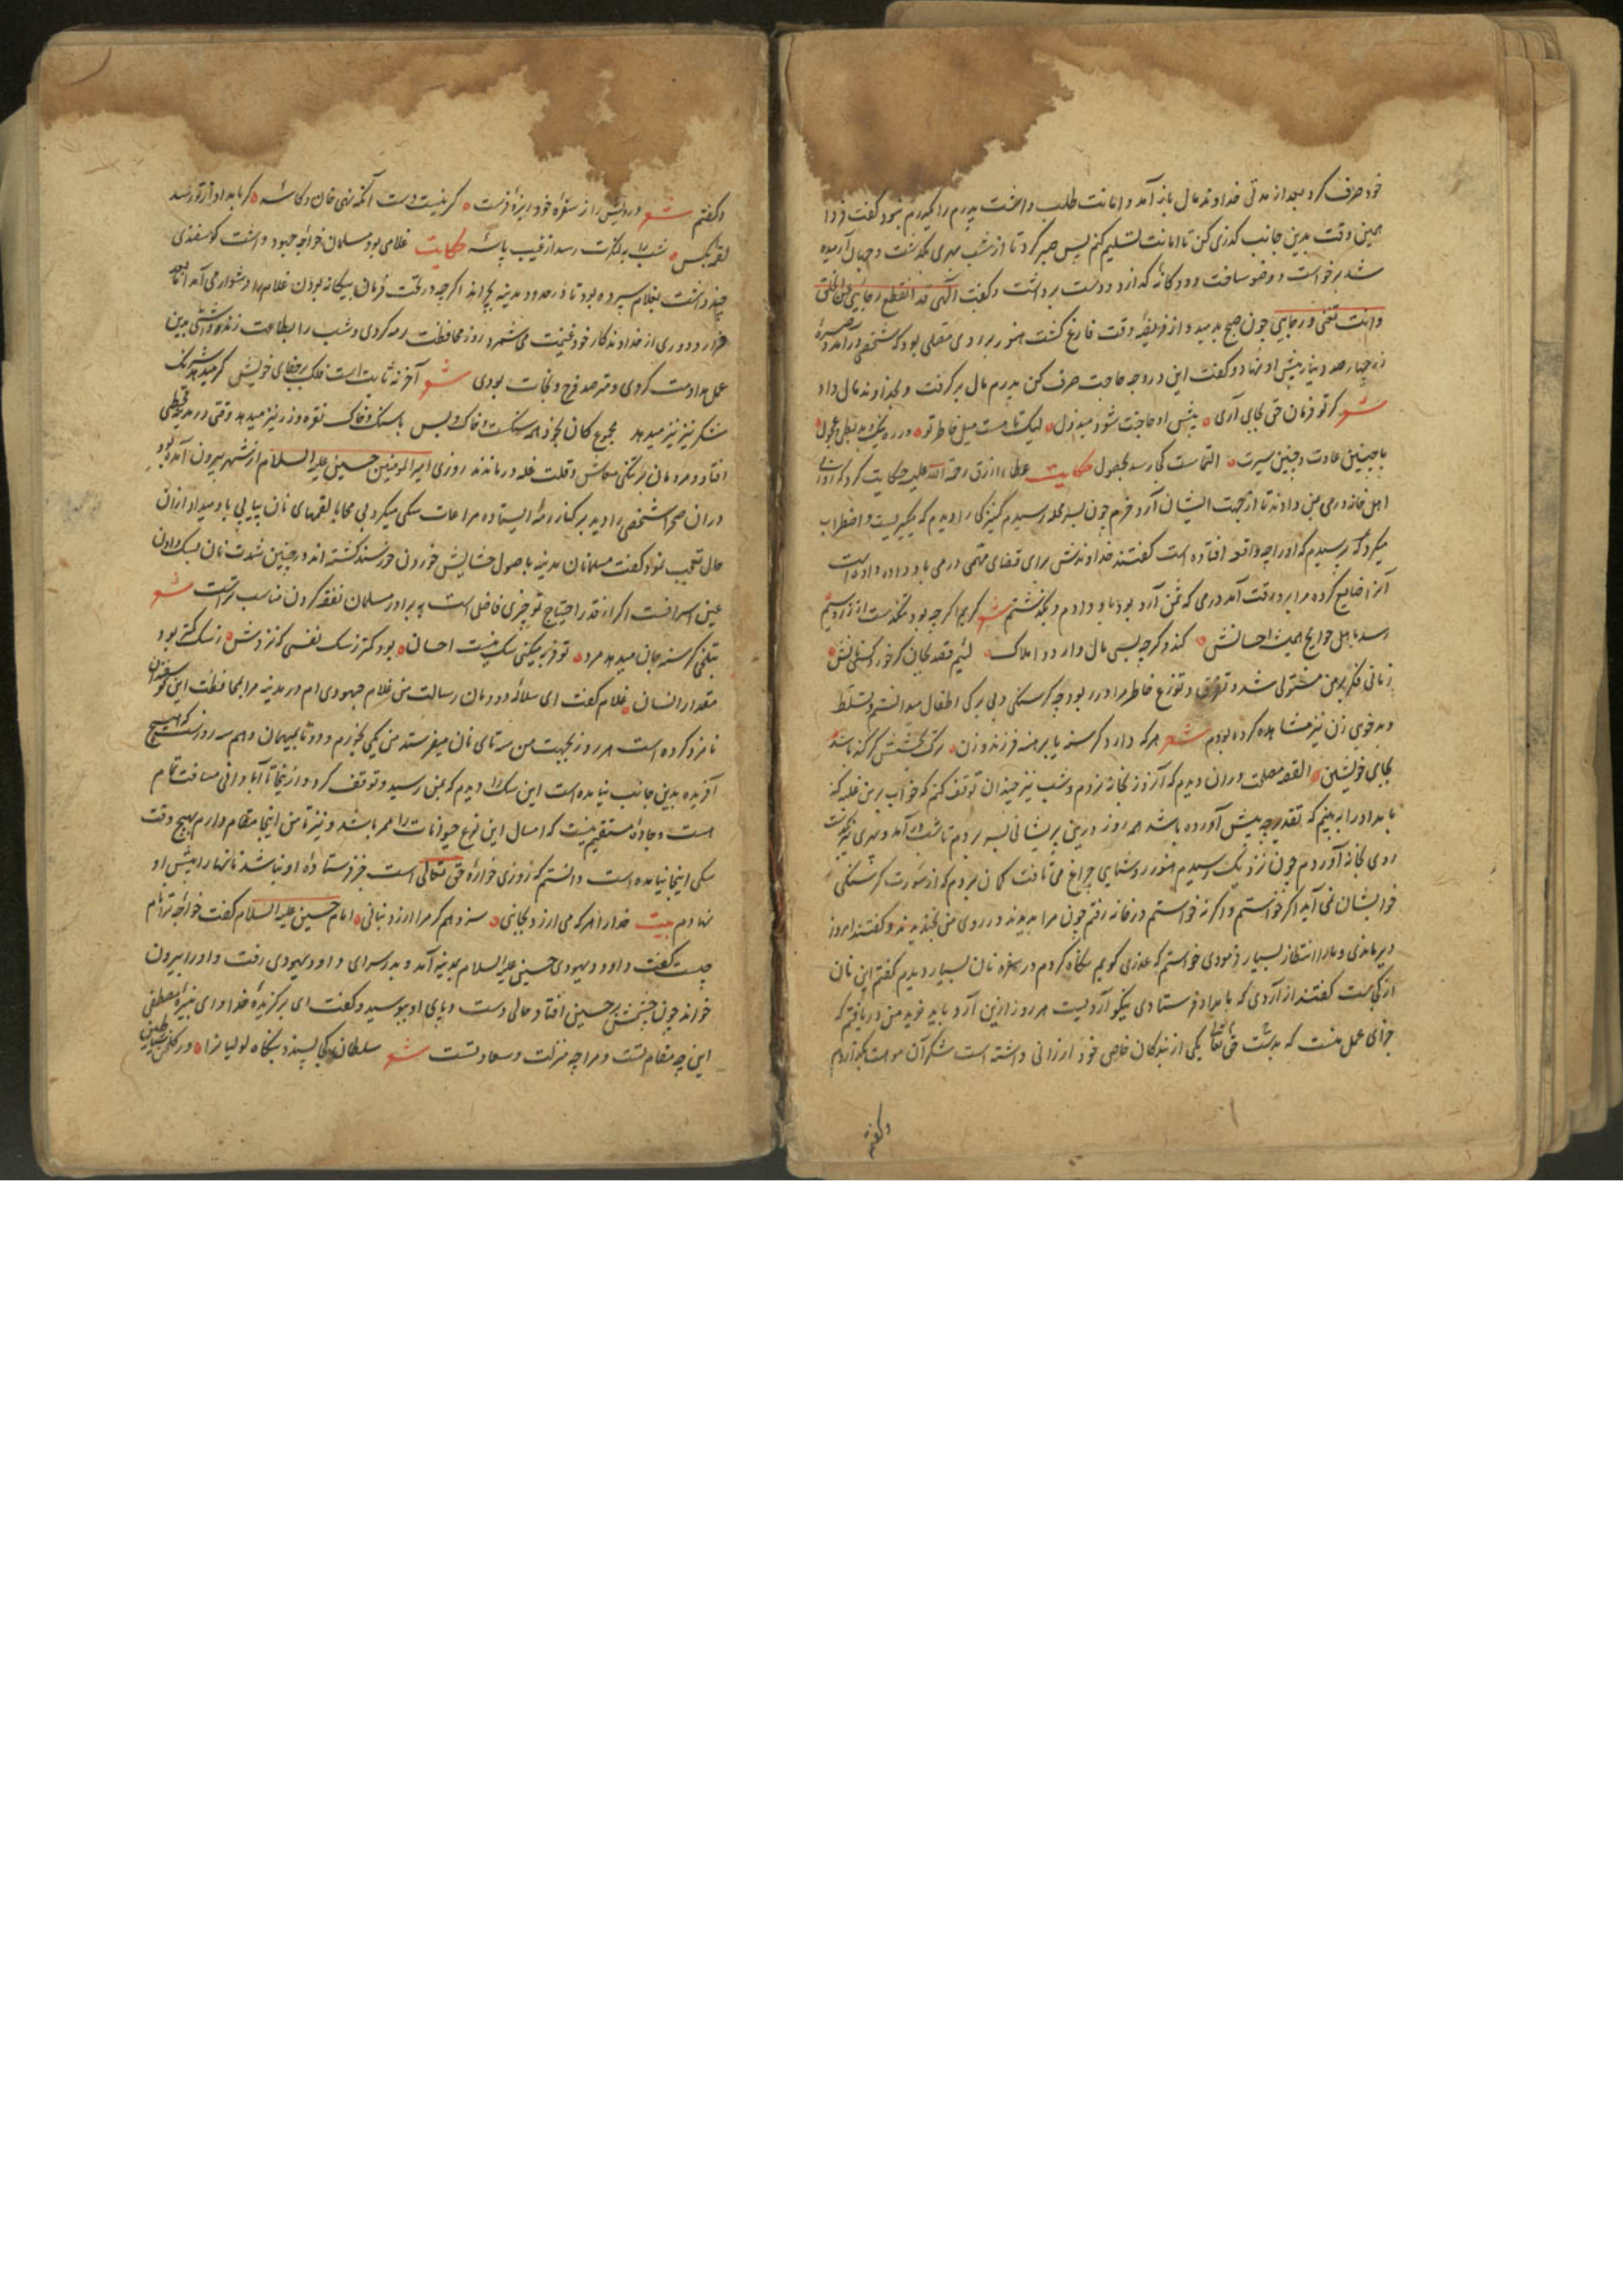 خود صرف کرد بعد از مدتی خداوند مال باز آمد و امانت طلب داشت پدرم را یکدرم نبود گفت فردا
همین وقت بدین جانب گذری کن تا امانت تسلیم کنم پس صبر کرد تا از شب بهری بگذشت و جهان آرمیده
شد برخواست و وضو ساخت و دوگانه گذارد و دست برداشت و گفت الهی قد انقطع رجائی عن الخلق
وانت ثقتی و رجایی چون صبح بدمید و از فریضه وقت فارغ گشت هنوز بر روی مصلی بود که شخصی درآمد و صرهٔ
زر چهارصد دینار پیش او نهاد و گفت این در وجه حاجت صرف کن پدرم مال برگرفت و بخداوند مال داد
شعر گر تو فرمان حق بجای آری پیش او حاجتت شود مبذول لیک تا هست میل خاطر تو
با چنین عادت و چنین سیرت التماست کی رسد بحصول حکایت عطاء ازرق رحمة الله علیه حکایت کرد که
اهل خانه درمی بمن دادند تا از جهت ایشان آرد خرم چون بسر محله رسیدم کنیزکی را دیدم که میگریست و اضطراب
میکرد که پرسیدم که او را چه واقعه افتاده است گفتند خداوندش برای قضای مهمی درمی باو داده است
آنرا ضایع کرده مرا برو رقت آمد درمی که ثمن آرد بود باو دادم و بگذشتم شعر کریم اگر چه بود تنگدست از زر و سیم
رسد باهل حوایج همیشه احسانش کند و گر چه بسی مال دارد و املاک لئیم قصد بجان گر خورد کسی نانش
زمانی فکر بر من مستولی شد و تفرق و توزع خاطر مرا در ربود چه گرسنگی و بی برگی اطفال میدانستم و تسلط
و بدخویی زن نیز مشاهده کرده بودم شعر هر که دارد گرسنه یا برهنه فرزند و زن
بجای خویشتن القصه مصلحت در آن دیدم که آن روز بخانه نروم و شب نیز چندان توقف کنم که خواب بر من غلبه کند
بامداد را به بینم که تقدیر چه پیش آورده باشد همه روز درین پریشانی بسر بردم تا شب درآمد و بهری نیز بگذشت
روی بخانه آوردم چون نزدیک رسیدم هنوز روشنایی چراغ می تافت گمان بردم که از سورت گرسنگی
خوابشان نمی آید اگر خواستم و اگر نخواستم در خانه رفتم چون مرا بدیدند در روی من بخندیدند و گفتند امروز
دیر ماندی و ما را انتظار بسیار فرمودی خواستم که عذری گویم نگاه کردم در سفره نان بسیار دیدم گفتم این نان
از کجاست گفتند از آردی که بامداد فرستادی نیکو آردیست هر روز ازین آرد باید خرید من دریافتم که
جزای عمل منست که بدست حق تعالی یکی از بندگان خاص خود ارزانی داشته است شکر آن موهبت بگزاردم
وگفتم
وگفتم شعر درویش را از سفره خود ریزهٔ فرست گر نیست دست آنکه نهی خوان و کاسه گر بامداد از تو رسد
لقمهٔ بکس شب را بدرت رسد از غیب یا سه حکایت غلامی بود مسلمان خواجه جهود داشت گوسفندی
چند داشت بغلام سپرده بود تا در حدود مدینه بچراند اگر چه در تحت فرمان بیگانه بودن غلام را دشوار می آمد اما بعد
قرار و دوری از خداوندگار خود غنیمت می شمرد روز محافظت رمه کردی و شب را بطاعت زنده داشتی برین
عمل مداومت کردی و مترصد فرج و نجات بودی شعر آخر نه ثابت است فلک بر جفای خویش گر میدهد شرنگ
شکر نیز نیز میدهد مجموع کان بخود همه سنگست و خاک و بس با سنگ و خاک نقره و زر نیز میدهد وقتی در مدینه قحطی
افتاد و مردمان از تنگی معاش و قلت غله درماندند روزی امیرالمومنین حسین علیه السلام از شهر بیرون آمده بود
در آن صحرا شخصی را دید بر کنار رمهٔ ایستاده مراعات سگی میکرد بی محابا لقمهای نان پیاپی باو میداد از آن
حال تعجب نمود گفت مسلمانان مدینه باصول حشایش خوردن خورسند گشته اند در چنین شدت نان بسگ دادن
عین اسرافست اگر از قدر احتیاج تو چیزی فاضل است به برادر مسلمان نفقه کردن مناسب تر است شعر
بتلخی گرسنه جان میدهد مرد تو فربه میکنی سگ نیست احسان بود کمتر ز سگ نفسی که نزدش ز سگ کمتر بود
مقدار انسان غلام گفت ای سلاله دودمان رسالت من غلام جهودی ام در مدینه مرا بمحافظت این گوسفندان
نامزد کرده است هر روز بجهت من سه تای نان میفرستد من یکی بخورم و دو تا بمیهمان دهم سه روزست که هیچ
آفریده بدین جانب نیامده است این سگ را دیدم که بمن رسید و توقف کرد و از اینجا تا آبادانی مسافت تمام
است و جادهٔ مستقیم نیست که امسال این نوع حیوانات را ممر باشد و نیز تا من اینجا مقام دارم هیچ وقت
سگی اینجا نیامده است دانستم که روزی خوارهٔ حق تعالی است جز فرستادهٔ او نباشد نانها را پیش او
نهادم بیت خدا را هر که می ارزد بجانی سزد هم گر مرا ارزد بنانی امام حسین علیه السلام گفت خواجه ترا نام
چیست گفت داود یهودی حسین علیه السلام بمدینه آمد و بدر سرای داود یهودی رفت و او را بیرون
خواند چون چشمش بر حسین افتاد حالی دست و پای او ببوسید و گفت ای برگزیدهٔ خدا و ای نبیرهٔ مصطفی
این چه مقام تست و مرا چه منزلت و سعادتست شعر سلطان کجا پسندد بنگاه لولیان را